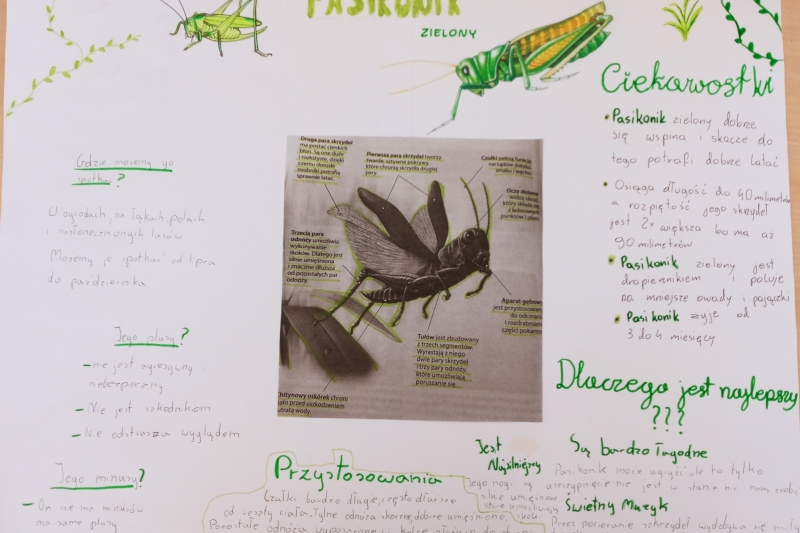 PASIKONIK
ZIELONY
Gdzie możemy go
spotkać?
W ogrodach, na łąkach, polach
i nasłonecznionych lasów
Możemy je spotkać od lipca
do października
Jego plusy?
- nie jest agresywny
niebezpieczny
- Nie jest szkodnikiem
- Nie odstrasza wyglądem
Jego minusy?
- On nie ma minusów
ma same plusy
Druga para skrzydeł
ma postać cienkich
błon. Są one duże
i rozłożyste, dzięki
czemu dorosłe
osobniki potrafią
sprawnie latać.
Pierwsza para skrzydeł tworzy
twarde, sztywne pokrywy,
które chronią skrzydła drugiej
pary.
Czułki pełnią funkcję
narządów dotyku,
smaku i węchu.
Oczy złożone
widzą obraz,
który składa się
z kolorowych
punktów i plam.
Trzecia para
odnóży umożliwia
wykonywanie
skoków. Dlatego jest
silnie umięśniona
i znacznie dłuższa
od pozostałych par
odnóży.
Aparat gębowy
jest przystosowany
do odcinania
i rozdrabniania
części pokarmu
Tułów jest zbudowany
z trzech segmentów.
Wyrastają z niego
dwie pary skrzydeł
i trzy pary odnóży,
które umożliwiają
poruszanie się.
Chitynowy oskórek chroni
ciało przed uszkodzeniem
utratą wody.
Ciekawostki
• Pasikonik zielony dobrze
się wspina i skacze do
tego potrafi dobrze latać
• Osiąga długość do 40 milimetrów
a rozpiętość jego skrzydeł
jest 2x większa bo ma aż
90 milimetrów
• Pasikonik zielony jest
drapieżnikiem i poluje
na mniejsze owady i pajączki
• Pasikonik żyje od
3 do 4 miesięcy
Dlaczego jest najlepszy
???
Jest
Najsilniejszy
Jego nogi są
silnie umięśnione
Są bardzo łagodne
Pasikonik może ugryźć ale to tylko
uszczypnięcie nie jest w stanie nam zrobić
Świetny Muzyk
Przez pocieranie skrzydeł wydobywa się
Przystosowania
Czułki bardzo długie, często dłuższe
od reszty ciała. Tylne odnóża skoczne, dobrze umięśnione
Pozostałe odnóża wyposażone w kolce